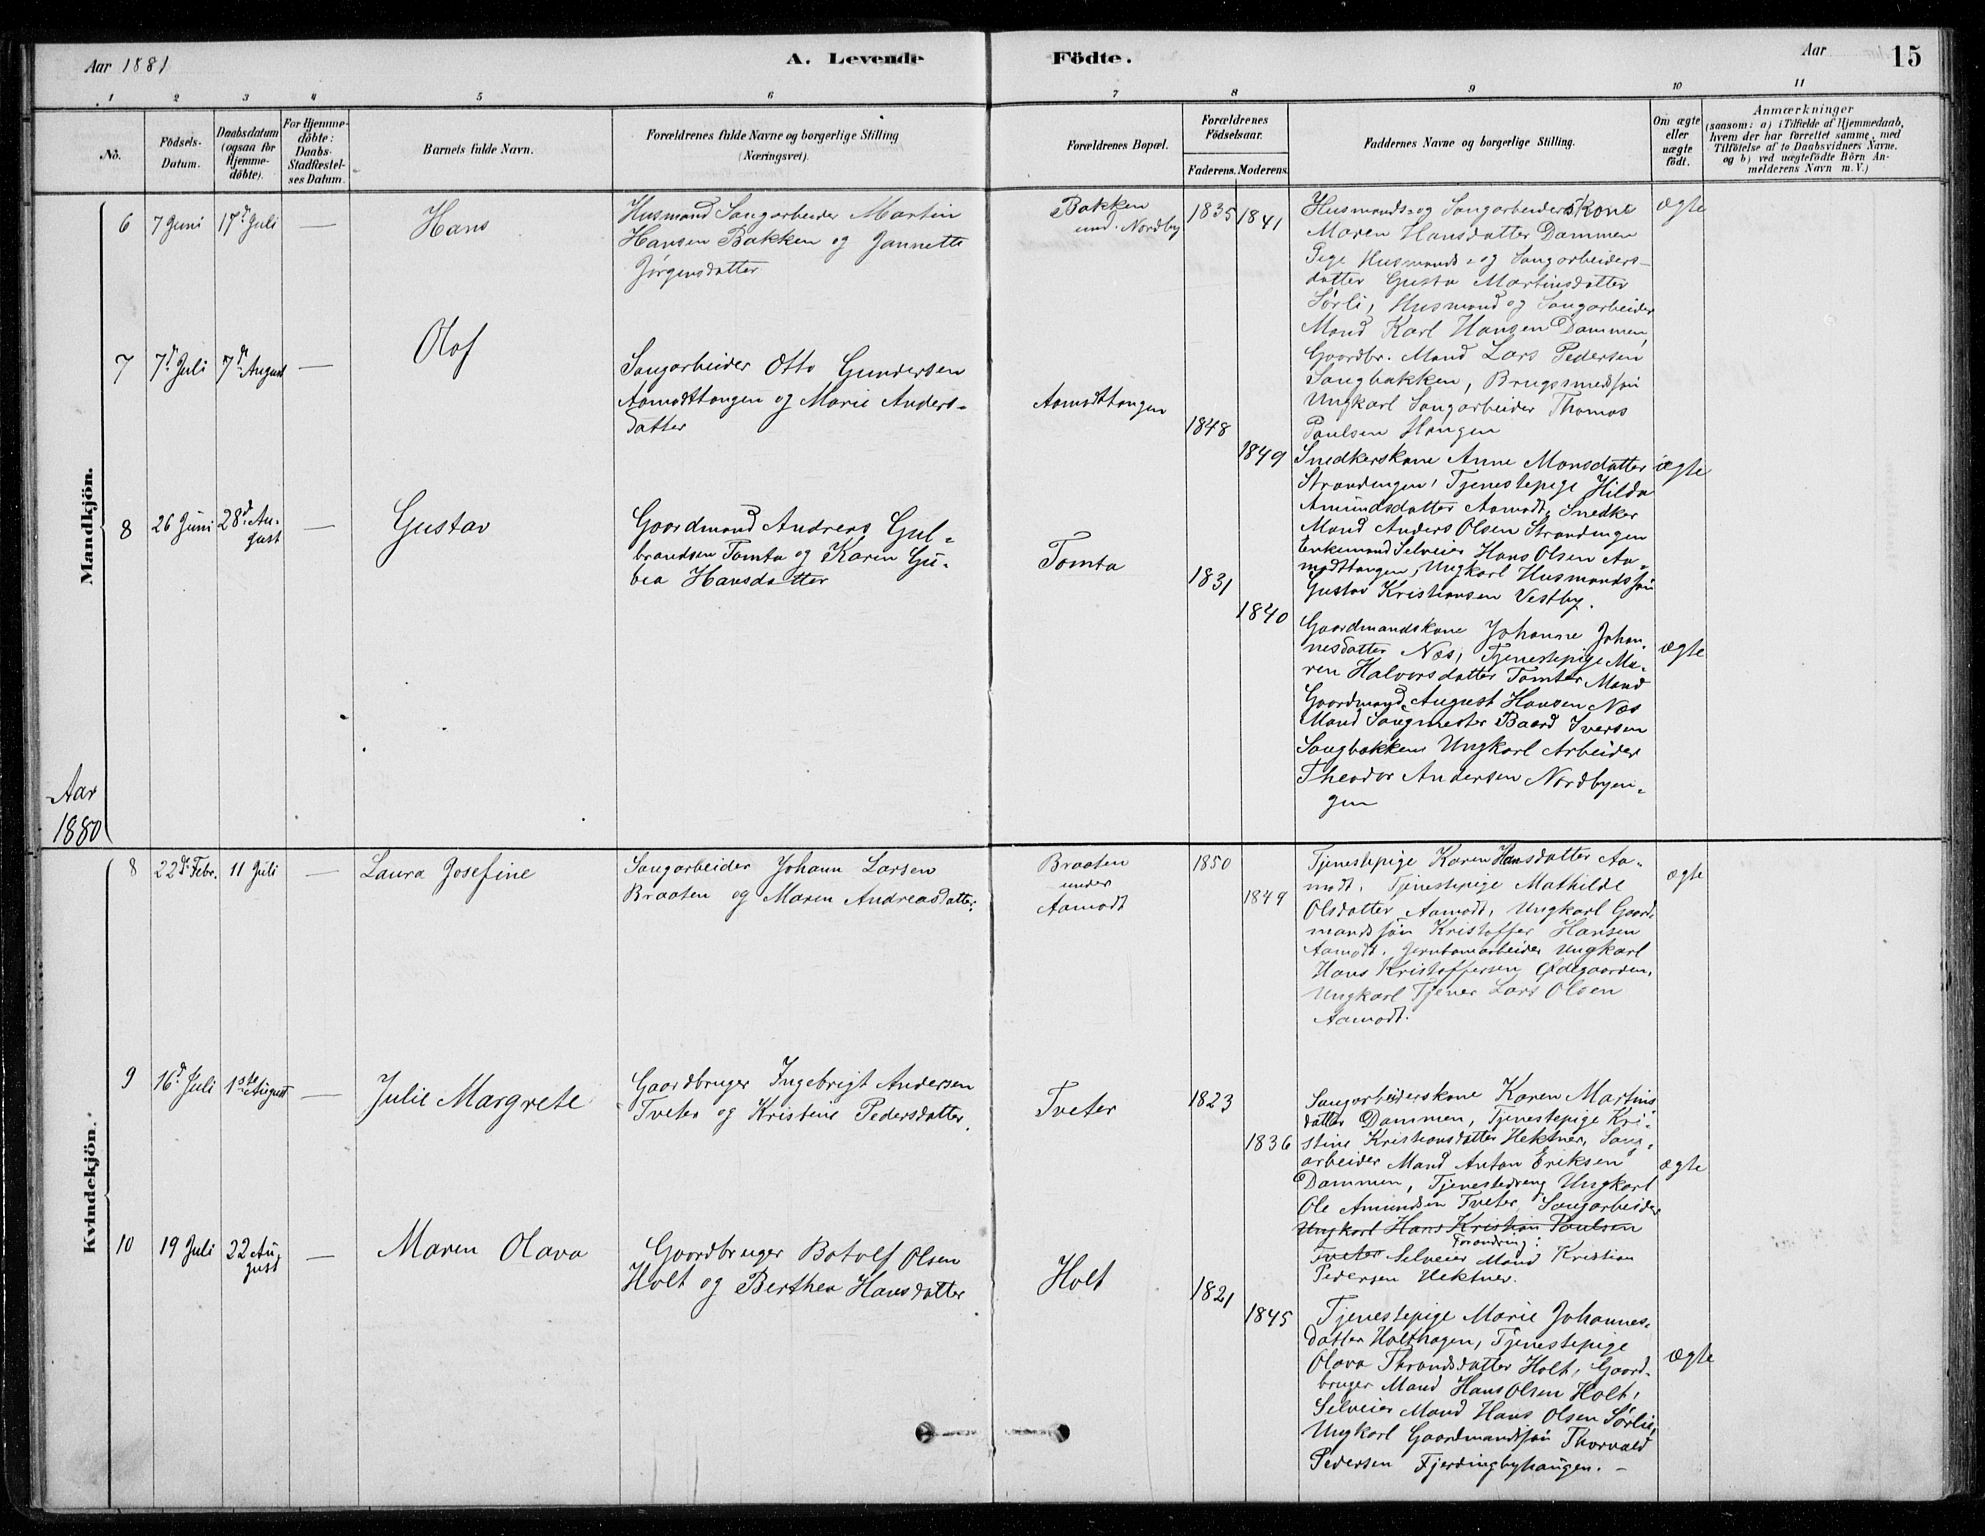 Aar 1881
A. Levende Födte.
Aar
15
1 2 3 4 5 6 7 8 9 10 11
No.
Födsels-
Datum.
Daabsdatum
(ogsaa for
Hjemme-
döbte).
For Hjemme-
döbte:
Daabs-
Stadfæstel-
ses Datum.
Barnets fulde Navn.
Forældrenes fulde Navne og borgerlige Stilling
(Næringsvei).
Forældrenes Bopæl.
Forældrenes
Födselsaar.
Faderens. Moderens.
Faddernes Navne og borgerlige Stilling.
Om ægte
eller
uægte
födt.
Anmærkninger
(saasom: a) i Tilfælde af Hjemmedaab,
hvem der har forrettet samme, med
Tilföielse af to Daabsvidners Navne.
og b) ved uægtefödte Börn An-
melderens Navn m. V.)
Mandkjön.
6 7 Juni 17d Juli —
Hans
Husmand Saugarbeider Martin
Hansen Bakken og Jannette
Jørgensdatter
Bakken
und. Nordby
1835 1841
Husmands- og Saugarbeiderskone
Maren Hansdatter Dammen
Pige Husmands- og Saugarbeiders-
datter Gusta Martinsdatter
Sørli, Husmand og Saugarbeider
Mand Karl Hansen Dammen,
Gaardbr. Mand Lars Pedersen
Saugbakken, Brugsmedsøn
Ungkarl Saugarbeider Thomas
Paulsen Haugen
ægte
7 7d Juli 7d August —
Olaf
Saugarbeider Otto Gundersen
Aamodttangen og Marie Anders-
datter
Aamodttangen
1848
1849
Snedkerskone Anne Monsdatter
Strandengen, Tjenestepige Hilda
Amundsdatter Aamodt, Snedker
Mand Anders Olsen Strandengen
Enkemand Selveier Hans Olsen Aa-
modttangen, Ungkarl Husmandssøn
Gustav Kristiansen Vestby.
ægte
8 26 Juni 28d Au-
gust —
Gustav
Gaardmand Andreas Gul-
brandsen Tomta og Karen Gu-
bea Hansdatter
Tomta
1831
1840
Gaardmandskone Johanne Johan-
nesdatter Næs, Tjenestepige Ma-
ren Halvorsdatter Tomter Mand
Gaardmand August Hansen Næs
Mand Saugmester Baard Iversen
Saugbakken Ungkarl Arbeider
Theodor Andersen Nordbyen-
gen
ægte
Aar
1880
Kvindekjön.
8 22d Febr. 11 Juli —
Laura Josefine
Saugarbeider Johann Larsen
Braaten og Maren Andreasdatter.
Braaten
under
Aamodt
1850
1849
Tjenestepige Karen Hansdatter Aa-
modt, Tjenestepige Mathilde
Olsdatter Aamodt, Ungkarl Gaard-
mandssøn Kristoffer Hansen
Aamodt. Jernbanarbeider Ungkarl
Hans Kristoffersen Ødegaarden,
Ungkarl Tjener Lars Olsen
Aamodt.
ægte
9 16d Juli 1ste August —
Julie Margrete
Gaardbruger Ingebrigt Andersen
Tveter og Kristine Pedersdatter.
Tveter
1823
1836
Saugarbeiderskone Karen Martins-
datter Dammen, Tjenestepige Kri-
stine Kristiansdatter Hektner, Saug-
arbeider Mand Anton Eriksen
Dammen, Tjenestedreng Ungkarl
Ole Amundsen Tveter, Saugarbeider
Ungkarl Hans Kristian Paulsen
Forandring:
Tveter Selveier Mand Kristian
Pedersen Hektner.
ægte
10 19 Juli 22 Au-
gust —
Maren Olava
Gaardbruger Botolf Olsen
Holt og Berthea Hansdatter
Holt
1821
1845
Tjenestepige Marie Johannes-
datter Holthagen, Tjenestepige
Olava Thrandsdatter Holt, Gaard-
bruger Mand Hans Olsen Holt,
Selveier Mand Hans Olsen Sørlie,
Ungkarl Gaardmandssøn Thorvald
Pedersen Fjerdingbyhaugen. —
ægte